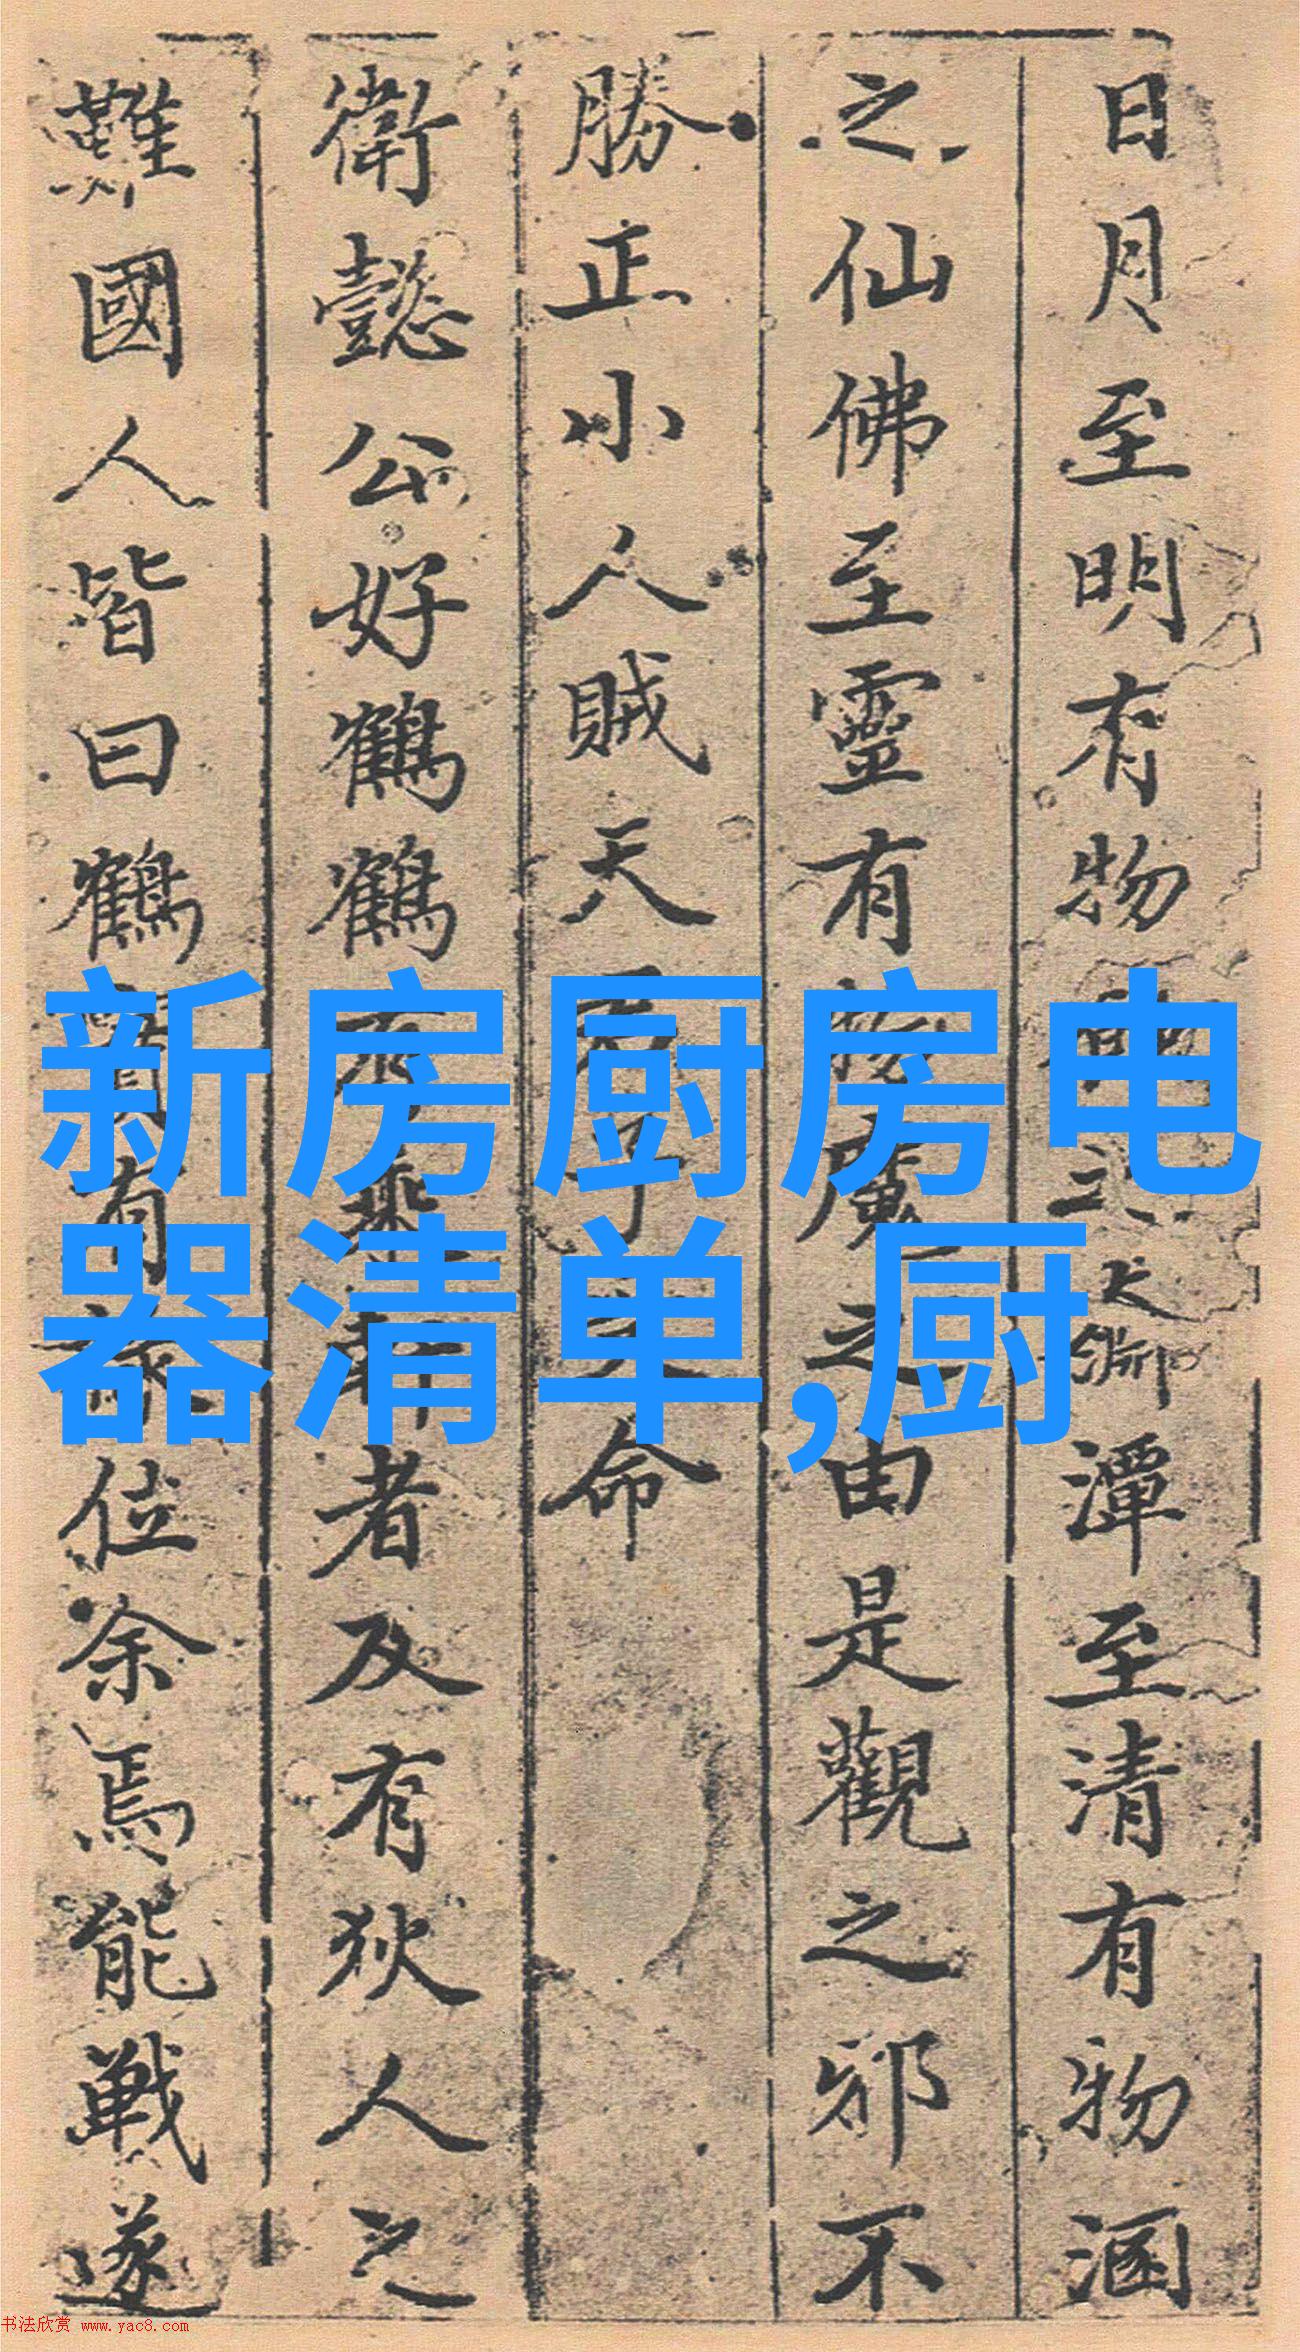 日月至明有物
之大淵潭至清有物涵
之仙佛至靈有
魔之由是觀之邪不
勝正小人賊天
命
衛懿公好鶴鶴
者及有狄人之
難國人皆曰鶴
有
位余焉能戰遂
新房厨房电
器清单,厨
书法欣赏 www.yac8.com